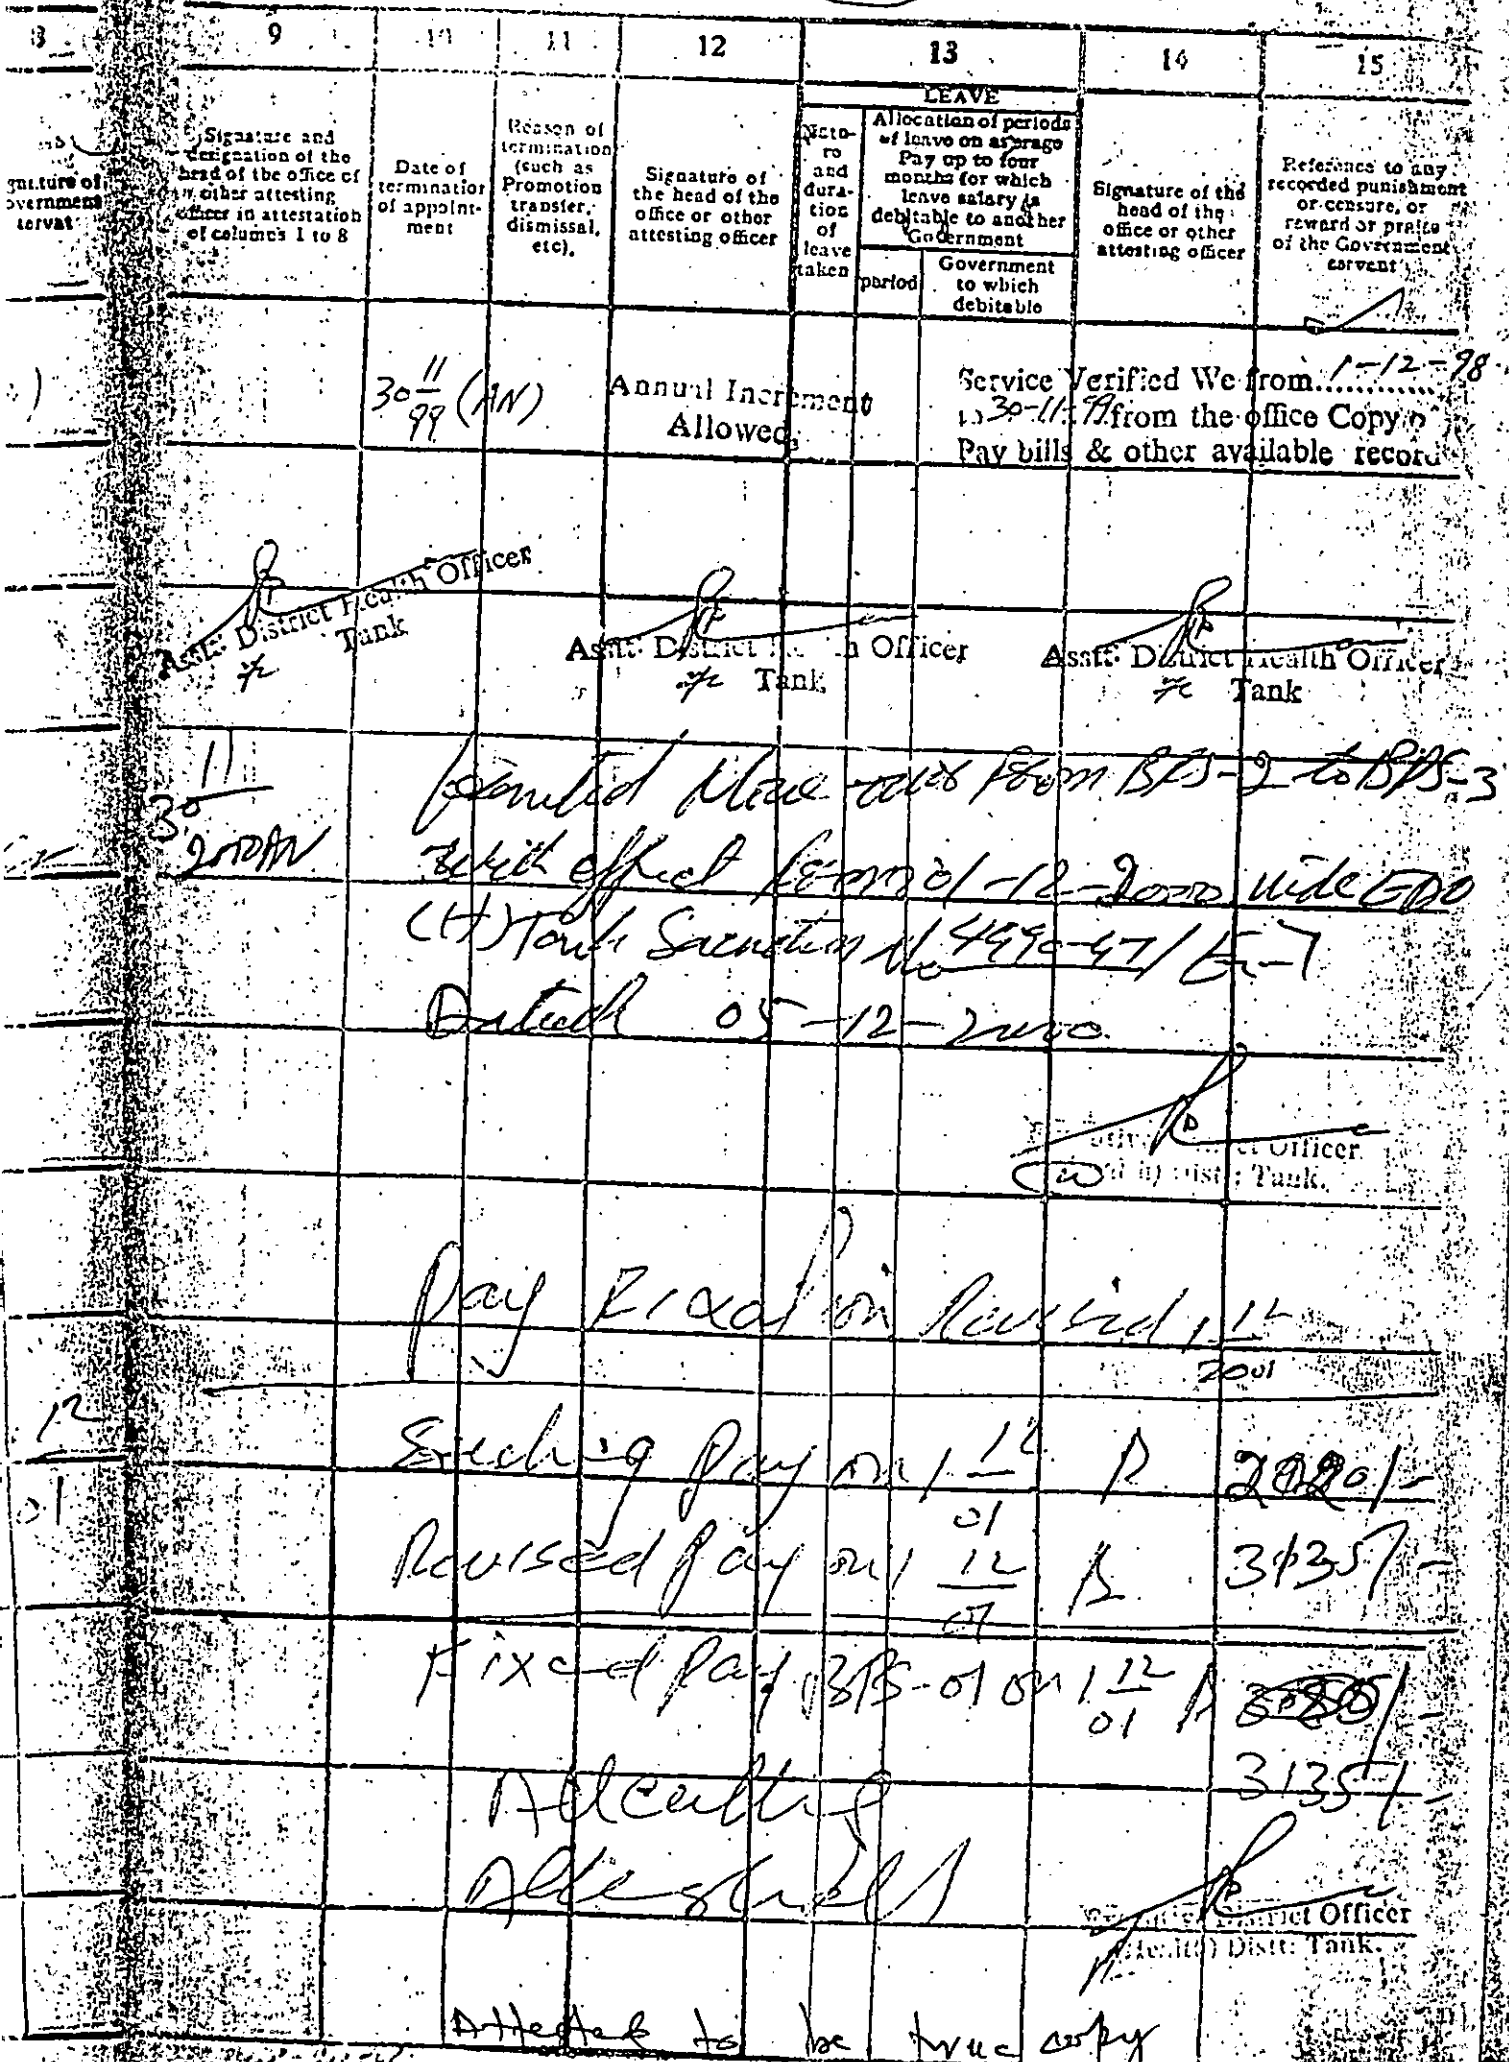 8 9 10 11 12 13 14 15
LEAVE
Signature and designation of the head of the office of other attesting officer in attestation of columns 1 to 8
Date of termination of appointment
Reason of termination (such as Promotion transfer, dismissal, etc).
Signature of the head of the office or other attesting officer
Nature and duration of leave taken
Allocation of periods of leave on average Pay up to four months for which leave salary is debitable to another Government
period
Government to which debitable
Signature of the head of the office or other attesting officer
Reference to any recorded punishment or censure, or reward or praise of the Government servent
30 11/99 (AN)
Annual Increment
Allowed,
Service Verified We from 1-12-98
to 30-11-99 from the office Copy o
Pay bills & other available record
Asstt: District Health Officer
Tank
Asstt: District Officer
Tank
Asstt: District Health Officer
Tank
30 11/2000 AN
Move-over from BPS-2 to BPS-3
With effect from 01-12-2000 vide EDO
(H) Tank Sanction No 4990-97/E-7
Dated 05-12-2000.
Officer
Distt: Tank.
Pay Fixation Revised 1 12/2001
12/01
Pay on 1 12/01 R
Revised Pay on 1 12/01 R 3135/-
Fixed Pay BPS-01 on 1 12/01 R
3135/-
Attested
District Officer
(Health) Distt: Tank.
Attested to be true copy